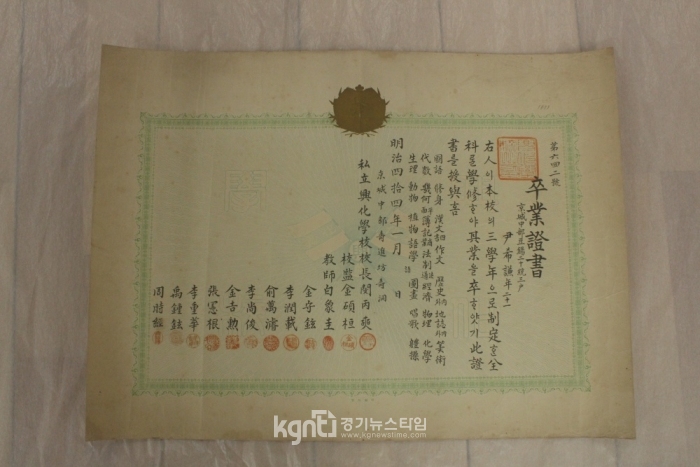 第六四二號
卒業證書
京城中部
尹希諴 年二十一
右人이本校의三學年으로制定한全
科를學修하야其業을卒하얏기此證
書를授與홈
國語 修身 漢文 作文 歷史 地誌 算術
代數 幾何 簿記 法制 經濟 物理 化學
生理 動物 植物 語學 圖畫 唱歌 體操
明治四拾四年一月 日
京城中部壽進坊壽洞
私立興化學校校長閔丙奭
校監金碩桓
教師白象圭
金守鉉
李潤載
兪萬濬
李尚俊
金吉勲
張憲根
李重華
禹鍾鉉
周時經
kgnt 경기뉴스타임
www.kgnewstime.com